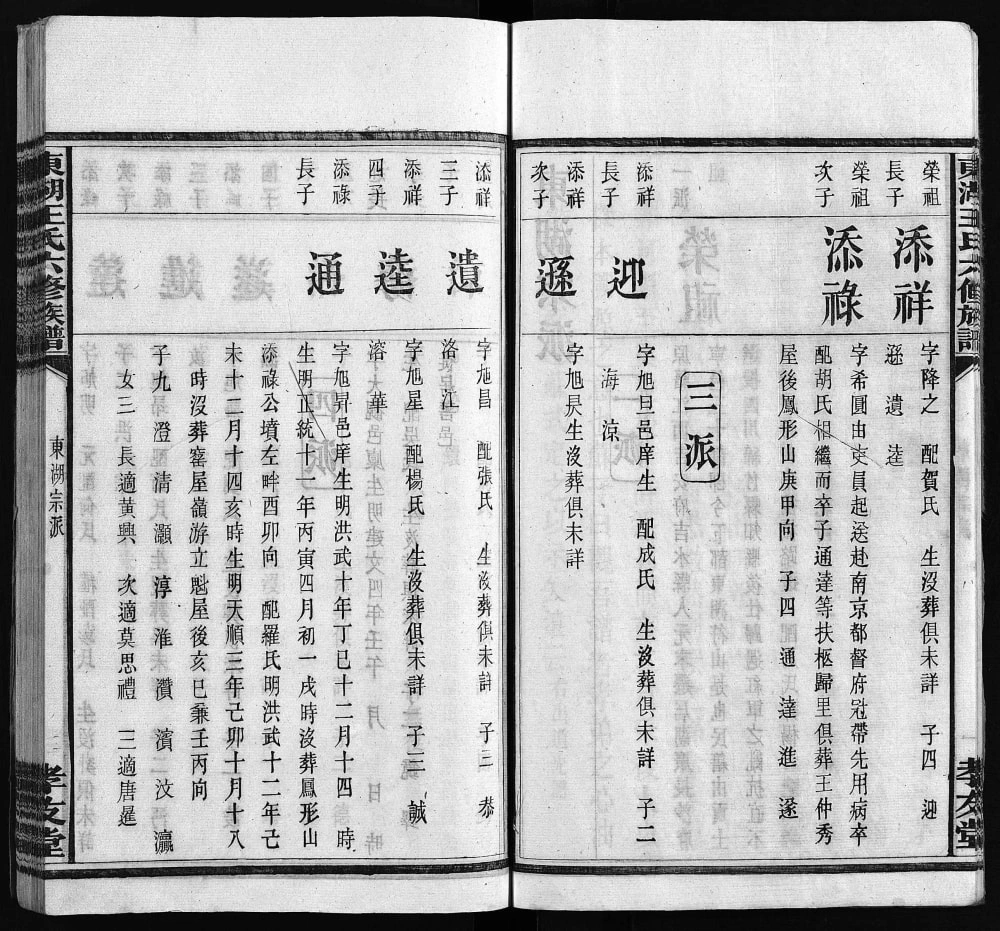 榮祖
長子
添祥
字降之 配賀氏 生沒葬俱未詳 子四 迎
遜 遺 逵
榮祖
次子
添祿
字希圓由吏員起送赴南京都督府冠帶先用病卒
配胡氏相繼而卒子通達等扶柩歸里俱葬王仲秀
屋後鳳形山庚甲向 子四 通 達 進 遂
三派
添祥
長子
迎
字旭旦邑庠生 配成氏 生沒葬俱未詳 子二
海 涼
添祥
次子
遜
字旭昃生沒葬俱未詳
孝友堂
添祥
三子
遺
字旭昌 配張氏 生沒葬俱未詳 子三 恭
洛 江
添祥
四子
逵
字旭星 配楊氏 生沒葬俱未詳 子三 誠
溶 華
添祿
長子
通
字旭昇邑庠生明洪武十年丁巳十二月十四 時
生明正統十一年丙寅四月初一戌時沒葬鳳形山
添祿公墳左畔酉卯向 配羅氏明洪武十二年己
未十二月十四亥時生明天順三年己卯十月十八
時沒葬窑屋嶺游立魁屋後亥巳兼壬丙向
子九 澄 清 灝 淳 淮 瓚 濱 汶 瀛
女三 長適黃興 次適莫思禮 三適唐暹
東湖王氏六修族譜
東湖宗派
二
孝友堂